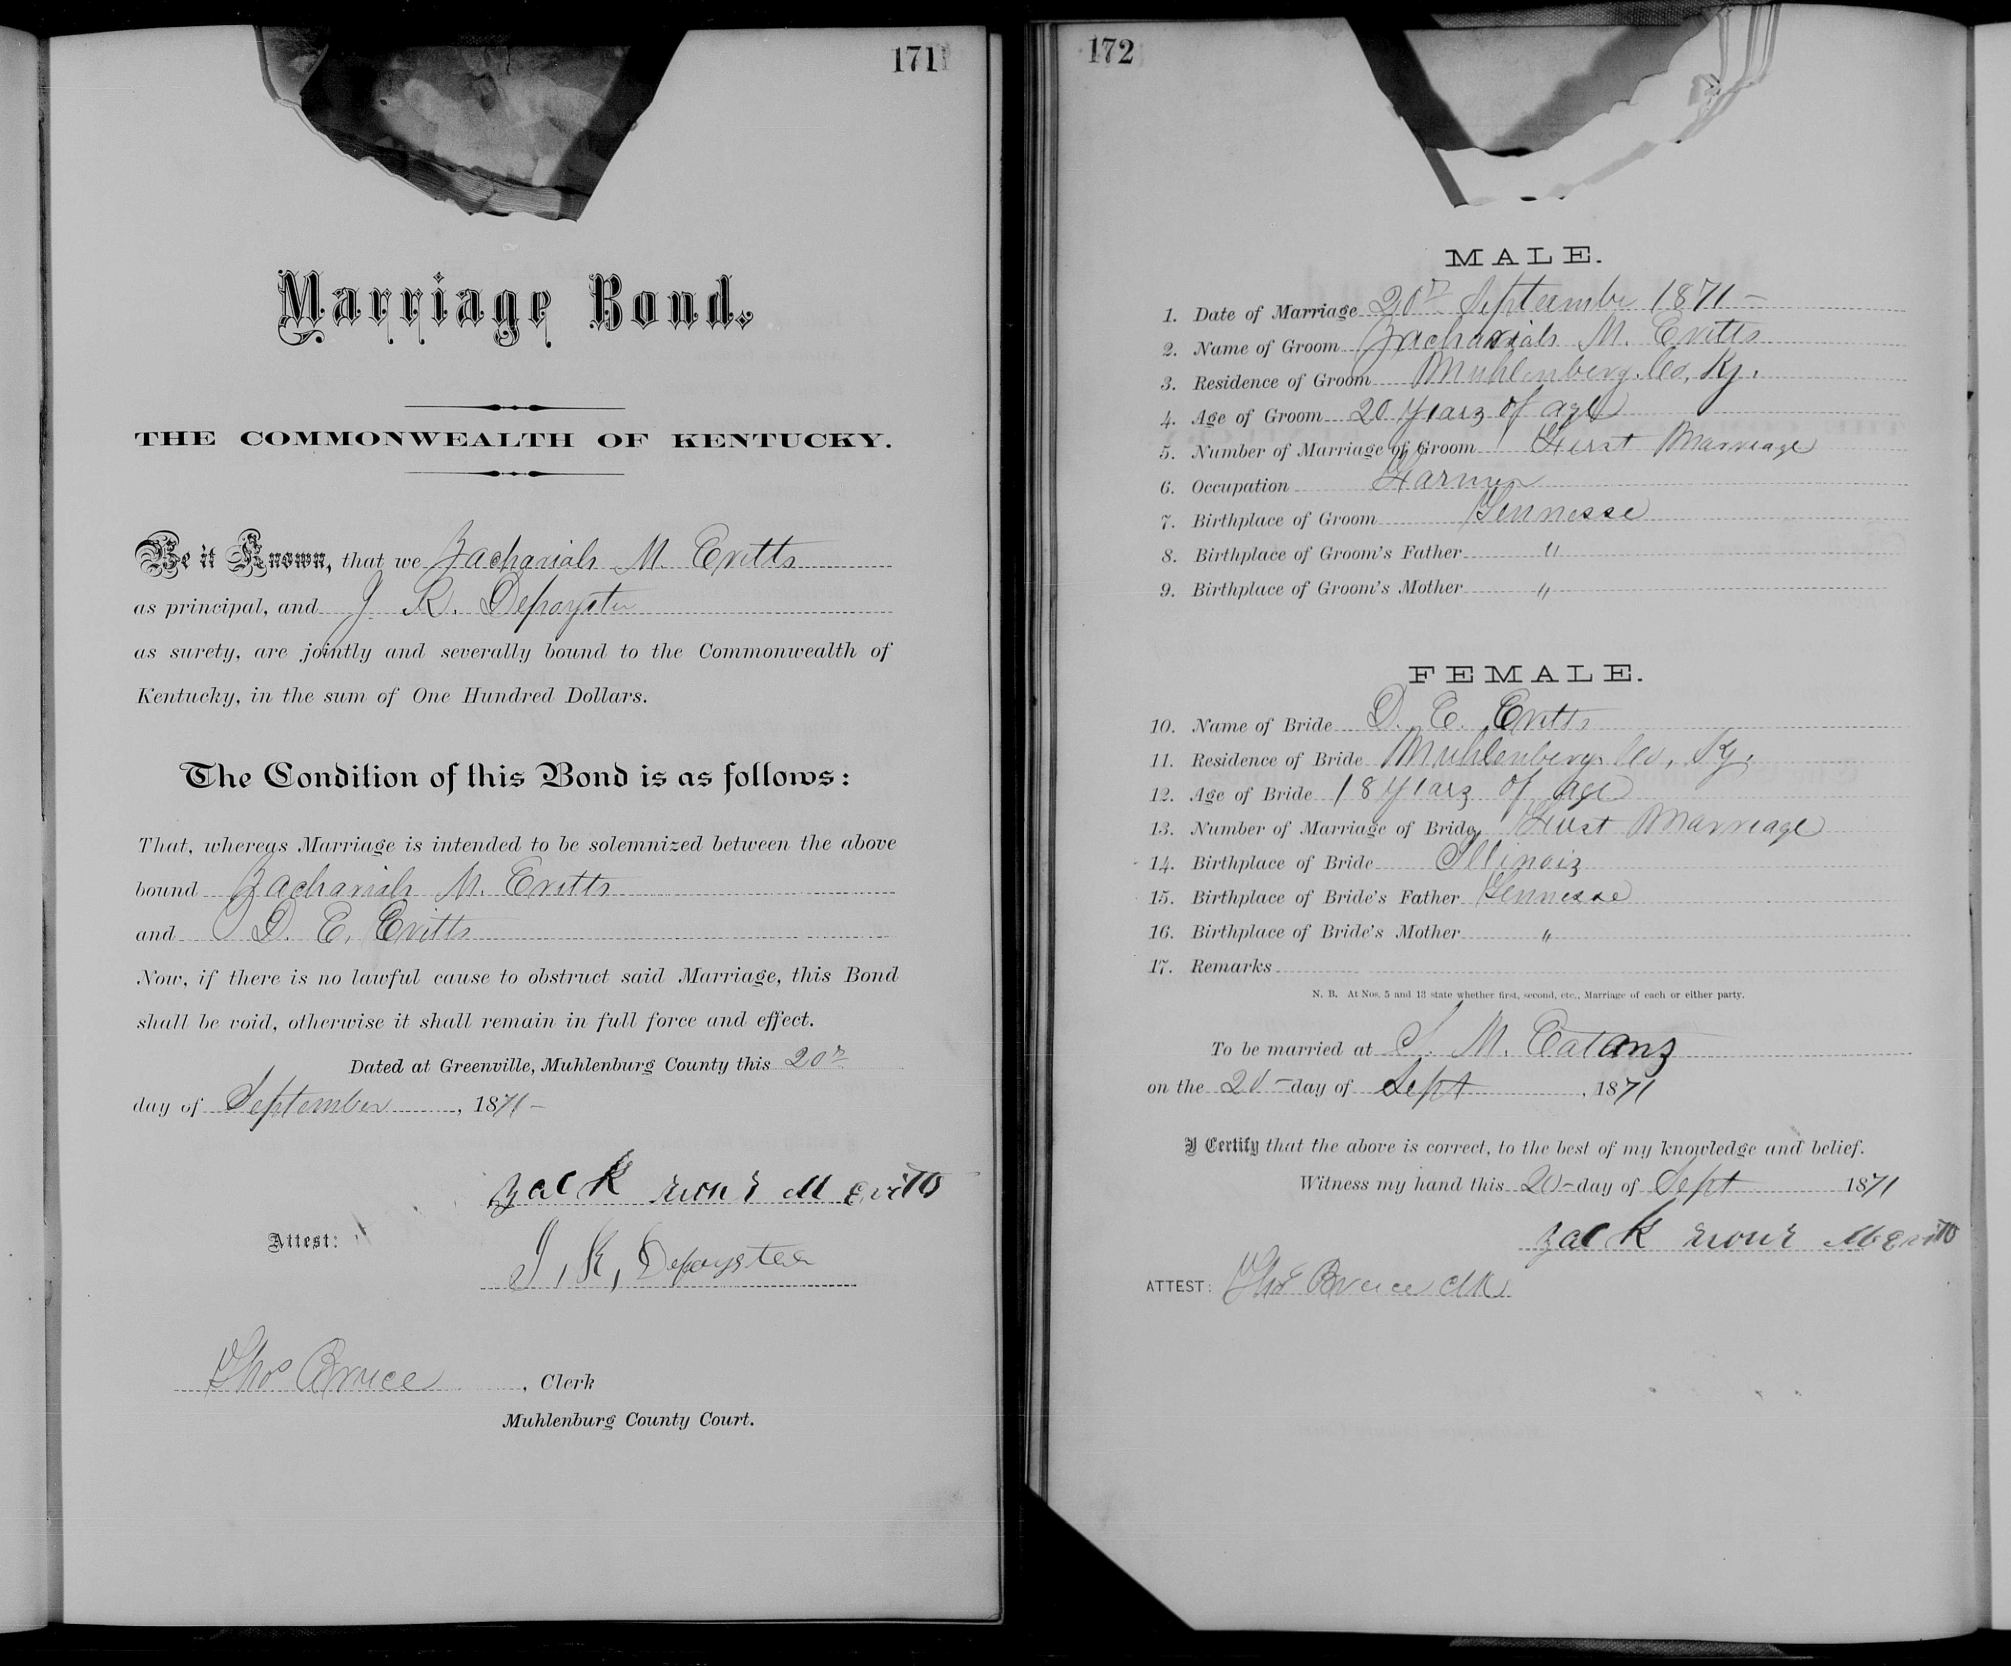 171
Marriage Bond.
THE COMMONWEALTH OF KENTUCKY.
Be it Known, that we Zachariah M. Evitts
as principal, and J. R. Depoyster
as surety, are jointly and severally bound to the Commonwealth of
Kentucky, in the sum of One Hundred Dollars.
The Condition of this Bond is as follows:
That, whereas Marriage is intended to be solemnized between the above
bound Zachariah M. Evitts
and D. E. Evitts
Now, if there is no lawful cause to obstruct said Marriage, this Bond
shall be void, otherwise it shall remain in full force and effect.
Dated at Greenville, Muhlenburg County this 20th
day of September, 1871-
zack M Evitts
Attest:
J, R, Depoyster
Thos Bruce, Clerk
Muhlenburg County Court.
172
MALE.
1. Date of Marriage 20th September 1871-
2. Name of Groom Zachariah M. Evitts
3. Residence of Groom Muhlenberg. Co, Ky.
4. Age of Groom 20 years of age
5. Number of Marriage of Groom First Marriage
6. Occupation Farmer
7. Birthplace of Groom Tennesse
8. Birthplace of Groom's Father "
9. Birthplace of Groom's Mother "
FEMALE.
10. Name of Bride D. E. Evitts
11. Residence of Bride Muhlenberg. Co, Ky.
12. Age of Bride 18 years of age
13. Number of Marriage of Bride First Marriage
14. Birthplace of Bride Illinois
15. Birthplace of Bride's Father Tennesse
16. Birthplace of Bride's Mother "
17. Remarks
N. B. At Nos. 5 and 13 state whether first, second, etc., Marriage of each or either party.
To be married at S. M. Eatons
on the 20-day of Sept, 1871
I Certify that the above is correct, to the best of my knowledge and belief.
Witness my hand this 20-day of Sept 1871
zack M Evitts
ATTEST: Thos Bruce Clk